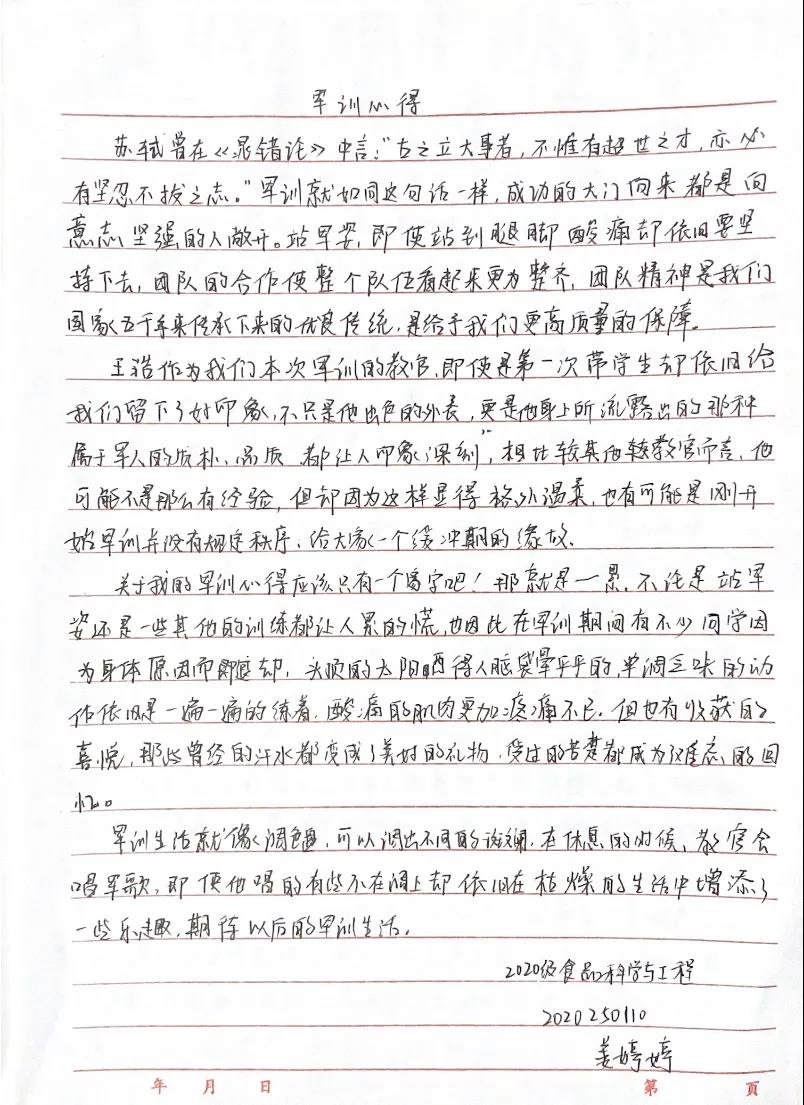 军训心得
苏轼曾在《晁错论》中言："古之立大事者，不惟有超世之才，亦必
有坚忍不拔之志。"军训就如同这句话一样，成功的大门向来都是向
意志坚强的人敞开。站军姿，即使站到腿脚酸痛却依旧要坚
持下去，团队的合作使整个队伍看起来更为整齐，团队精神是我们
国家五千年来传承下来的优良传统，是给予我们更高质量的保障。
王浩作为我们本次军训的教官，即使是第一次带学生却依旧给
我们留下了好印象，不只是他出色的外表，更是他身上所流露出的那种
属于军人的质朴、品质 都让人印象深刻，相比较其他教官而言，他
可能不是那么有经验，但却因为这样显得格外温柔，也有可能是刚开
始军训并没有规定秩序，给大家一个缓冲期的缘故。
关于我的军训心得应该只有一个字吧！那就是一累，不论是站军
姿还是一些其他的训练都让人累的慌，也因此在军训期间有不少同学因
为身体原因而退却，头顶的太阳晒得人脑袋晕乎乎的，单调乏味的动
作依旧是一遍一遍的练着，酸痛的肌肉更加疼痛不已，但也有收获的
喜悦，那些曾经的汗水都变成了美好的礼物，受过的苦楚都成为难忘的回
忆。
军训生活就像调色盘，可以调出不同的斑斓，在休息的时候，教官会
唱军歌，即便他唱的有些不在调上却依旧在枯燥的生活中增添了
一些乐趣，期待以后的军训生活。
2020级食品科学与工程
2020250110
姜婷婷
年 月 日 第 页